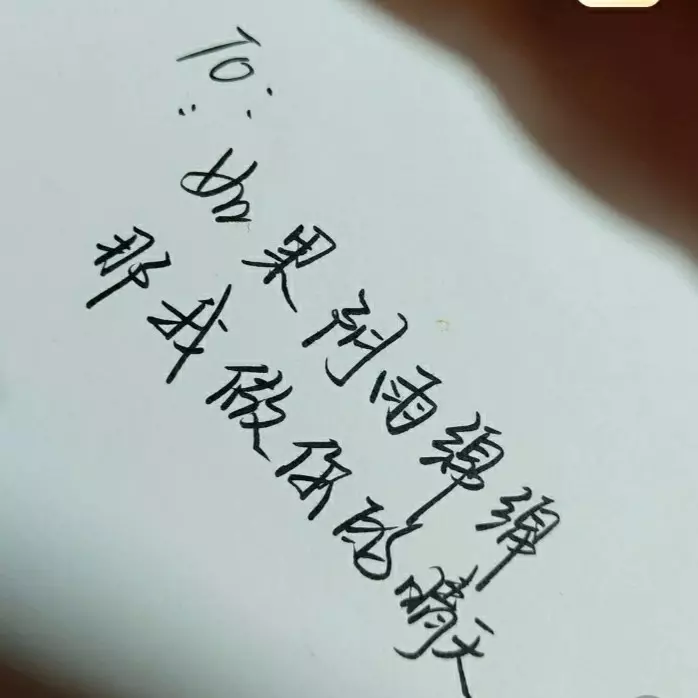 To:
如果阴雨绵绵
那我做你的晴天